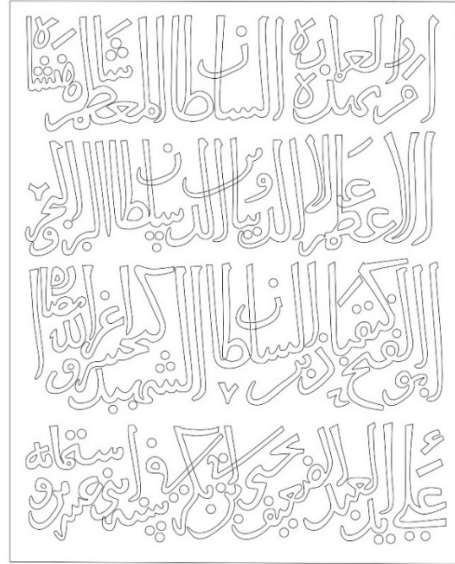 امر بهذه العمارة السلطان المعظم شاهنشاه
الاعظم علا الدنيا والدين سلطان البر والبحر
ابو الفتح كيقباد بن السلطان الشهيد كيخسرو اعز الله انصاره
على يدى العبد الضعيف يحيى بن سنة اثنى عشرين و ستمائه